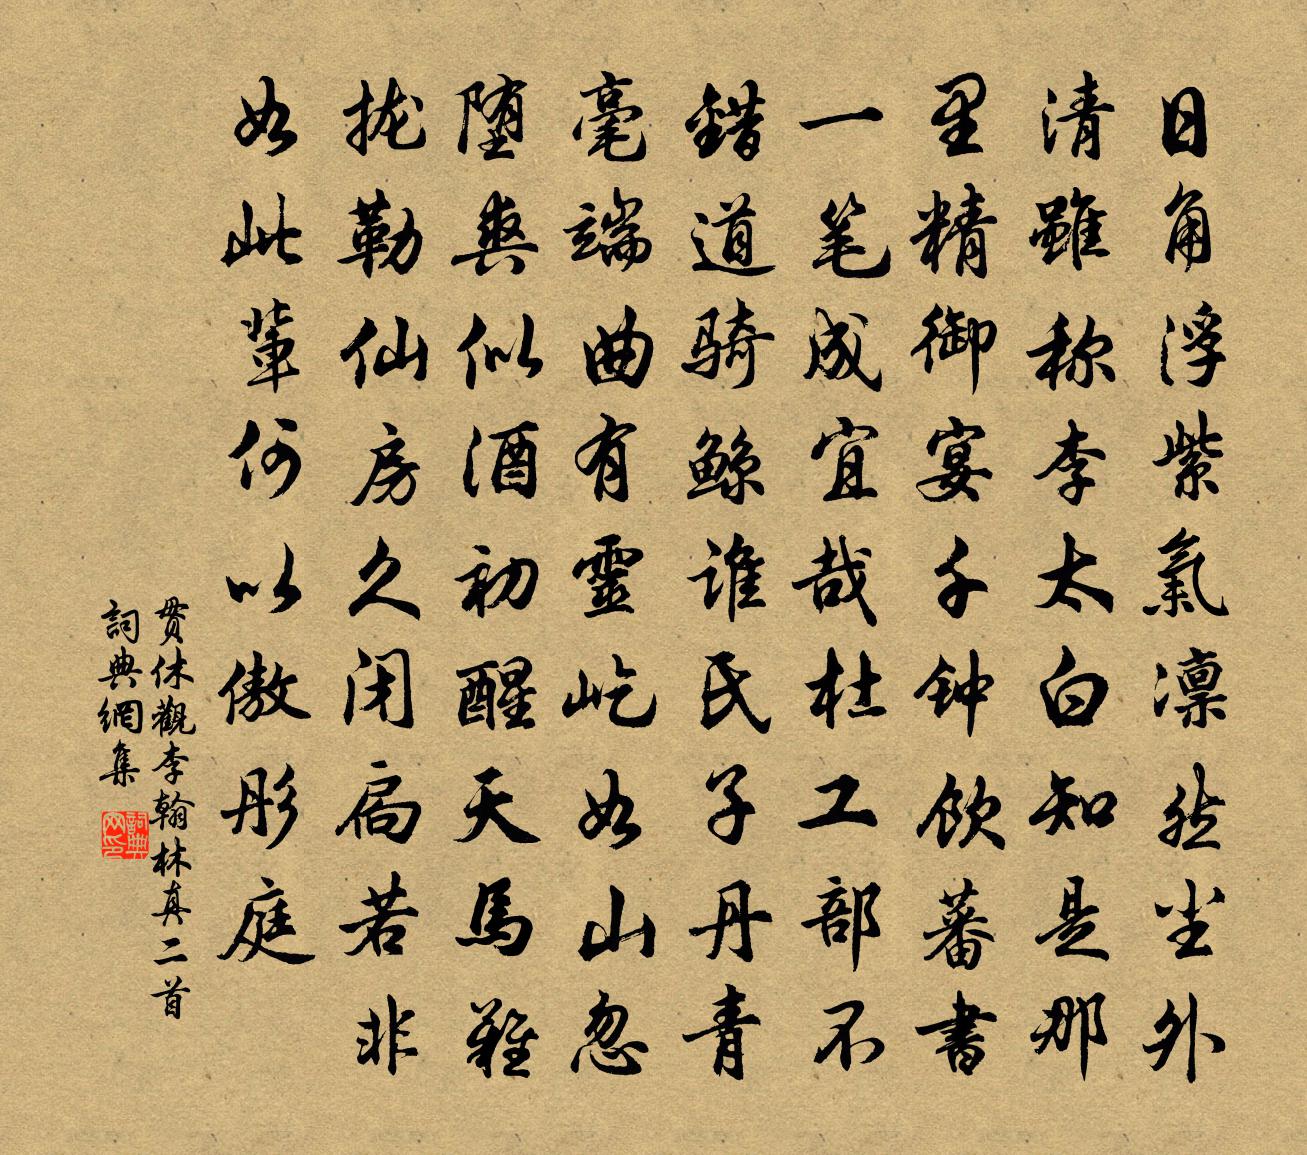 日角浮紫氣凛然尘外
清雖称李太白知是那
星精御宴千钟饮蕃書
一笔成宜哉杜工部不
錯道骑鲸谁氏子丹青
毫端曲有靈屹如山忽
堕爽似酒初醒天馬難
拢勒仙房久闭扃若非
如此輩何以傲彤庭
贯休觀李翰林真二首
詞典網集
詞典网印